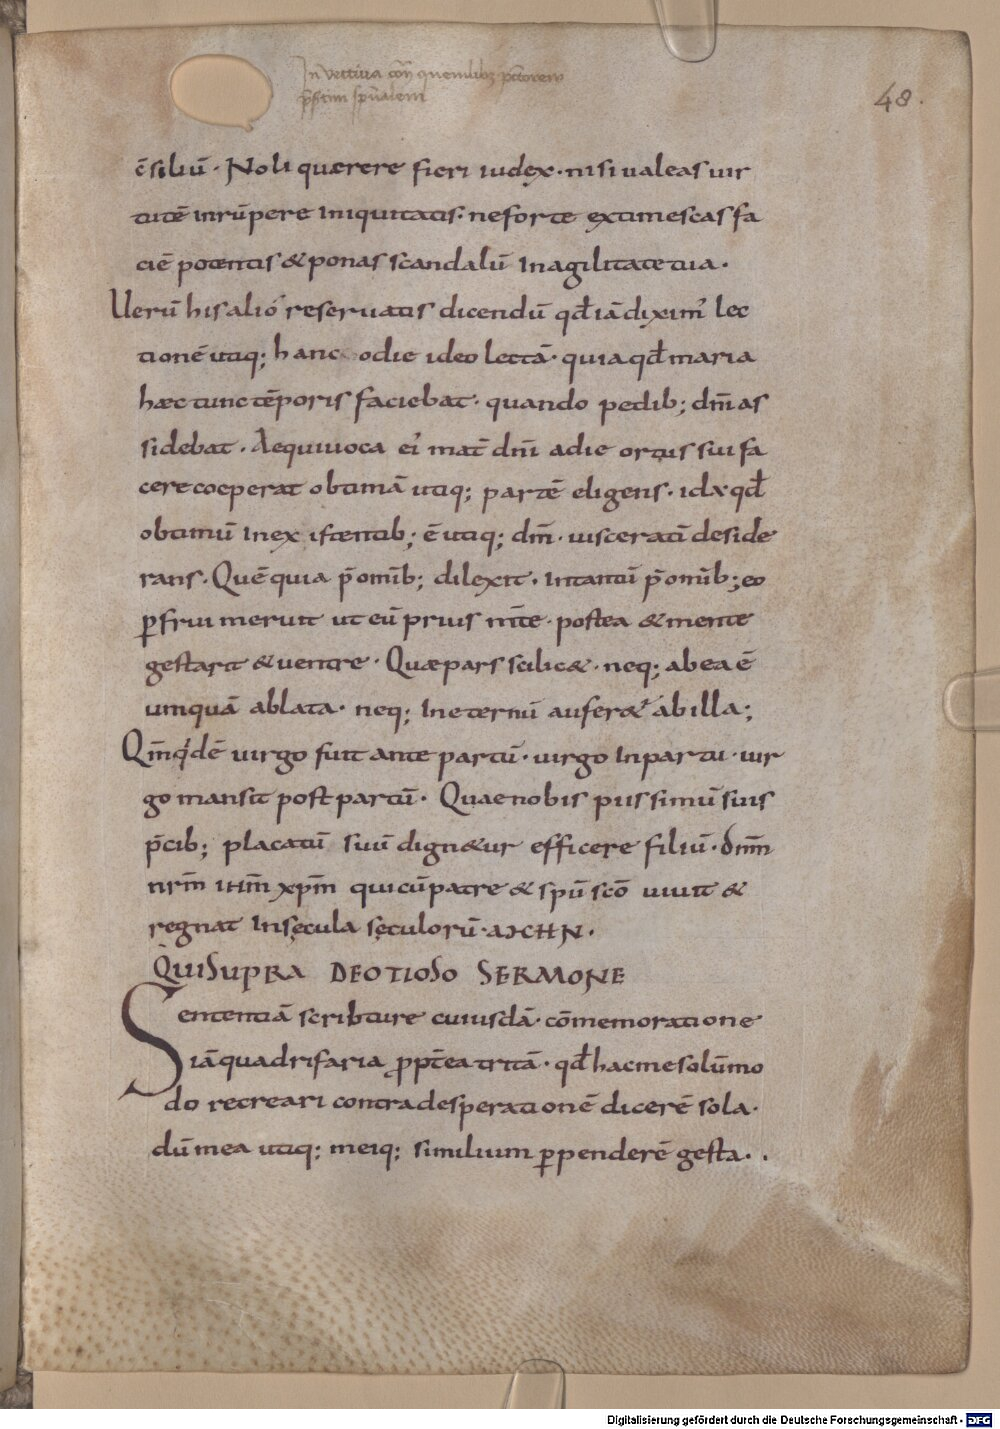 In vectiua con̄ quemlibꝫ pctorem
p̄sertim sp̄ualem
48.
c̄siliū · Noli quærere fieri iudex · nisi ualeas uir
tutē inrūpere iniquitatis · ne forte extimescas fa
ciē potentis & ponas scandalū in agilitate tua ·
Uerū his alió reseruatis dicendū qđ iā diximꝰ lec
tionē utiq; hanc odie ideo lectā · quia qđ maria
hæc tunc tēporis faciebat · quando pedib; dn̄i as
sidebat · Aequiuoca eiꝰ mat̄ dn̄i a die ortus sui fa
cere coeperat obtimā utiq; partē eligens · id ÷ qđ
obtimū in existentib; ē utiq; dn̄m · uisceratī deside
rans · Quē quia p̄ omīb; dilexit · in tantū p̄ omīb; eo
ꝑfrui meruit ut eū prius m̄te · postea & mente
gestarit & uentre · Quæ pars scilic& · neq; ab ea ē
umquā ablata · neq; in eternū aufer&ꝰ ab illa;
Qm̄ qͥdē uirgo fuit ante partū · uirgo in partu · uir
go mansit post partū · Quae nobis piissimū suis
p̄cib; placatū suū dign&ur efficere filiū · dn̄m
nr̄m ih̄m xp̄m qui cū patre & sp̄u sc̄o uiuit &
regnat in sęcula sęculorū · ΑΜΗΝ ·
QUI SUPRA DE OTIOSO SERMONE
Sententiā scribture cuiusdā · cōmemoratione
iā quadrifaria ꝓpt̄ea tritā · qđ hac me solūmo
do recreari contra desperationē dicerē sola ·
dū mea utiq; meiq; similium ꝑpenderē gesta · .
Digitalisierung gefördert durch die Deutsche Forschungsgemeinschaft - DFG